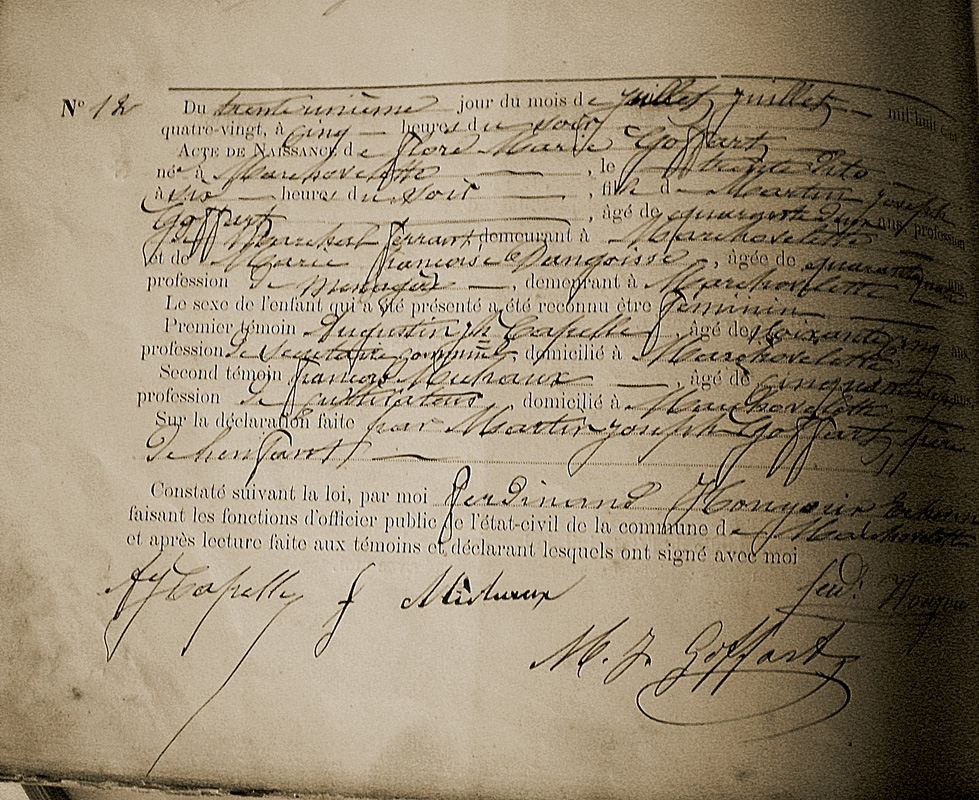 N° 12 Du trente unième jour du mois de juillet juillet mil huit cent
quatre-vingt, à cinq heures du soir
ACTE DE NAISSANCE de Flore Marie Goffart
née à Marchovelette, le trente dito
à six heures du soir, fille d Martin Joseph
Goffart, âgé de quarante deux ans, profession
de Marchal ferrant demeurant à Marchovelette
et de Marie françoise Dangoisse, âgée de quarante
profession de menagère, demeurant à Marchovelette
Le sexe de l'enfant qui a été présenté a été reconnu être féminin
Premier témoin Augustin Jh Capelle, âgé de soixante cinq ans
profession de secrétaire communal domicilié à Marchovelette
Second témoin françois Michaux, âgé de cinquante
profession de cultivateur domicilié à Marchovelette
Sur la déclaration faite par Martin joseph Goffart, père
de l'enfant
Constaté suivant la loi, par moi Ferdinand
faisant les fonctions d'officier public de l'état-civil de la commune de Marchovelette
et après lecture faite aux témoins et déclarant lesquels ont signé avec moi
AJ Capelle f Michaux ferd.
M. J. Goffart